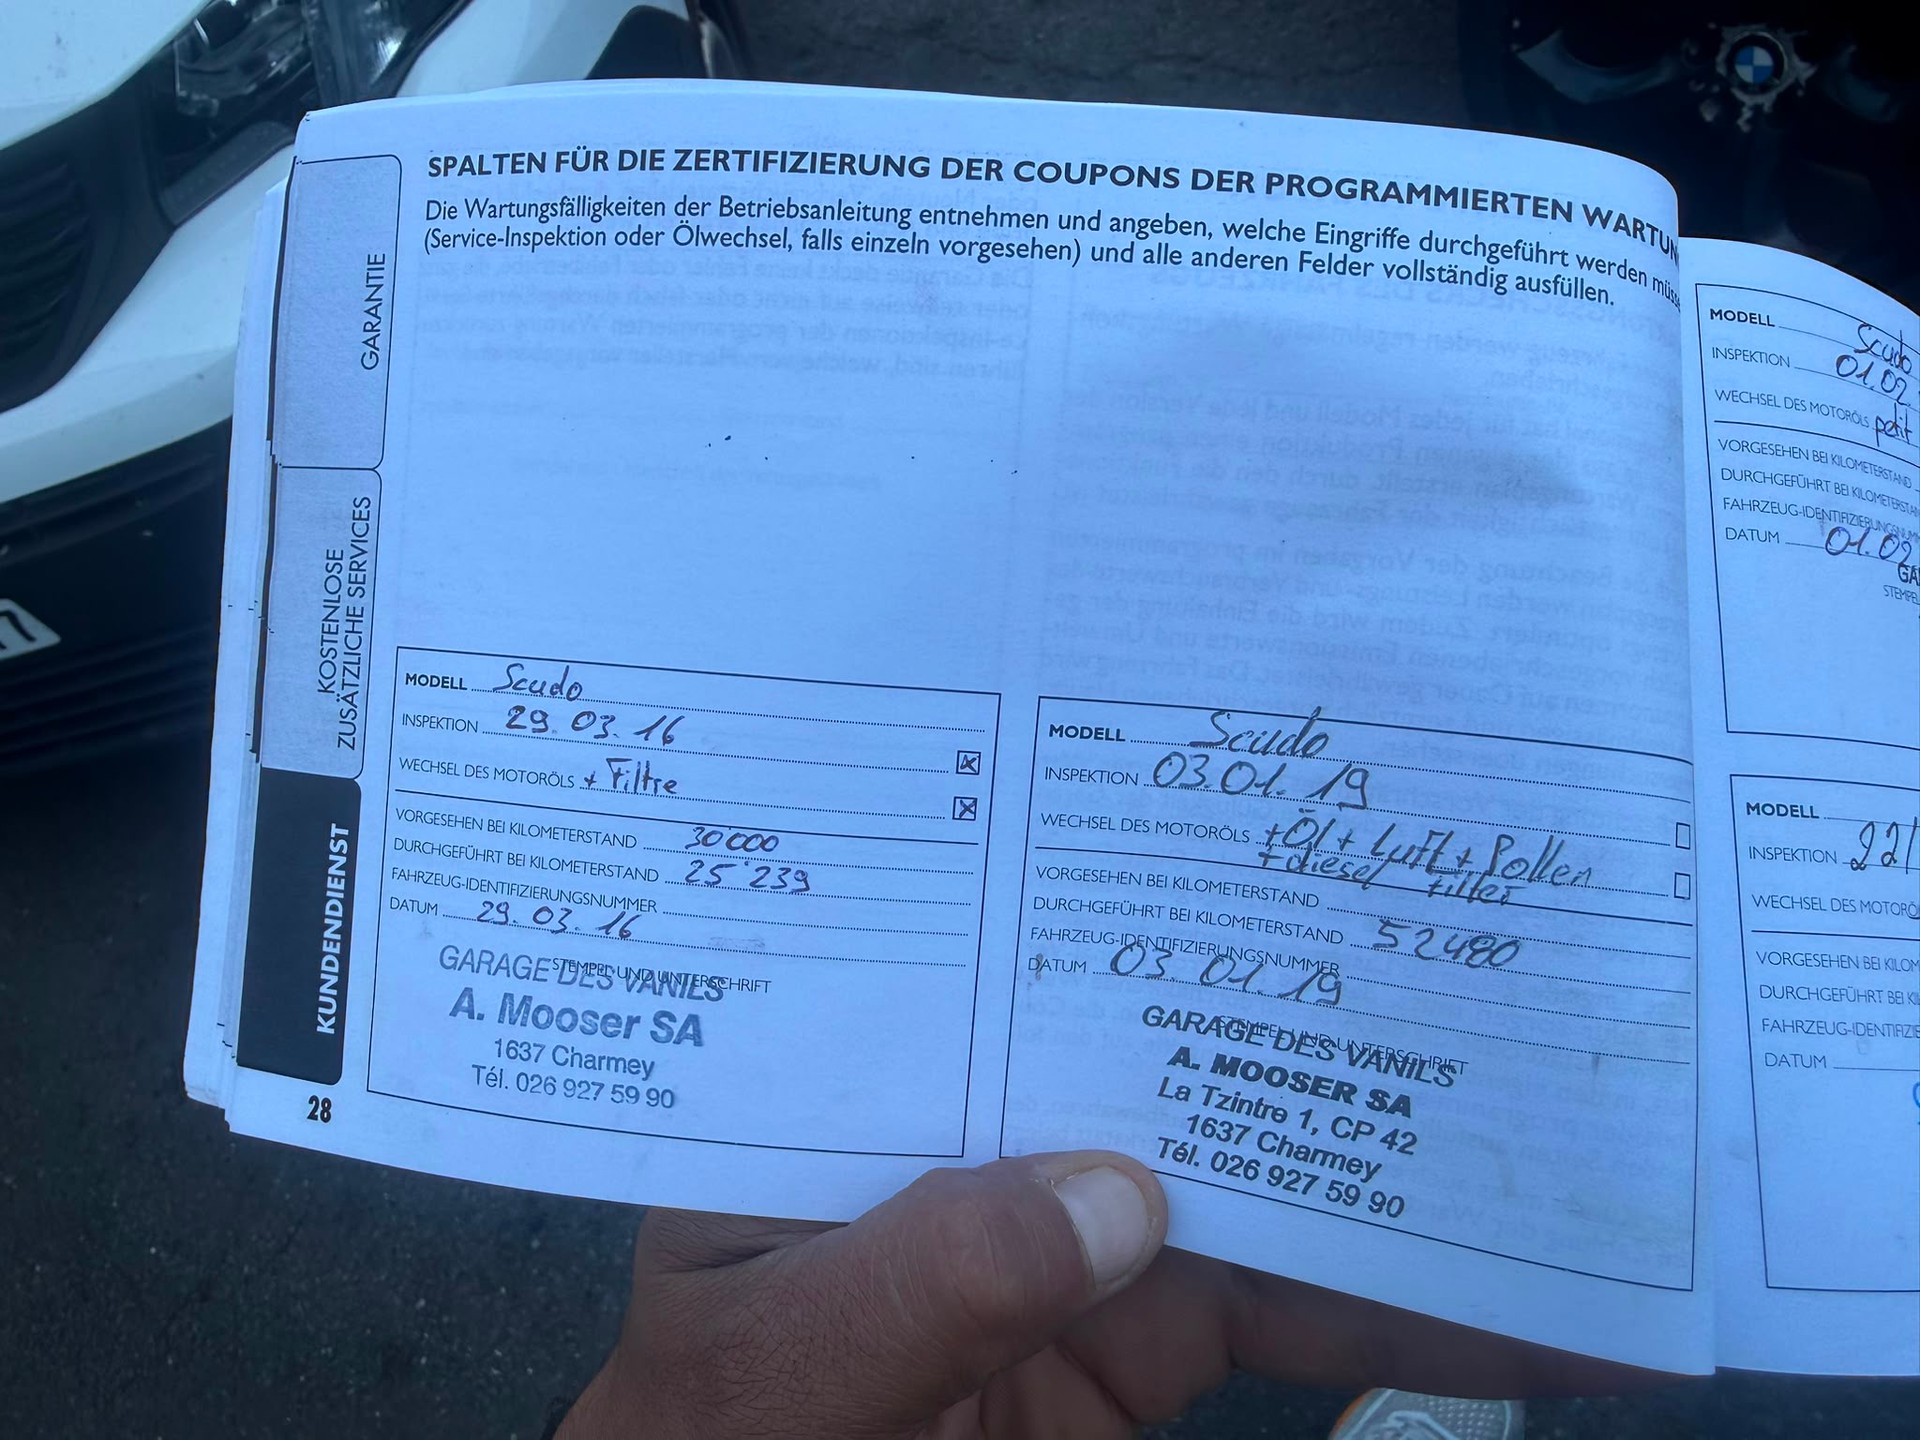 SPALTEN FÜR DIE ZERTIFIZIERUNG DER COUPONS DER PROGRAMMIERTEN WARTUN
Die Wartungsfälligkeiten der Betriebsanleitung entnehmen und angeben, welche Eingriffe durchgeführt werden müss
(Service-Inspektion oder Ölwechsel, falls einzeln vorgesehen) und alle anderen Felder vollständig ausfüllen.
GARANTIE
KOSTENLOSE
ZUSÄTZLICHE SERVICES
KUNDENDIENST
28
MODELL Scudo
INSPEKTION 29.03.16
WECHSEL DES MOTORÖLS + Filtre
VORGESEHEN BEI KILOMETERSTAND 30'000
DURCHGEFÜHRT BEI KILOMETERSTAND 25'239
FAHRZEUG-IDENTIFIZIERUNGSNUMMER
DATUM 29.03.16
STEMPEL UND UNTERSCHRIFT
GARAGE DES VANILS
A. Mooser SA
1637 Charmey
Tél. 026 927 59 90
MODELL Scudo
INSPEKTION 03.01.19
WECHSEL DES MOTORÖLS +Öl + Luft + Pollen
+ diesel Filter
VORGESEHEN BEI KILOMETERSTAND
DURCHGEFÜHRT BEI KILOMETERSTAND 52480
FAHRZEUG-IDENTIFIZIERUNGSNUMMER
DATUM 03.01.19
STEMPEL UND UNTERSCHRIFT
GARAGE DES VANILS
A. MOOSER SA
La Tzintre 1, CP 42
1637 Charmey
Tél. 026 927 59 90
MODELL Scudo
INSPEKTION 01.02.
WECHSEL DES MOTORÖLS petit
VORGESEHEN BEI KILOMETERSTAND
DURCHGEFÜHRT BEI KILOMETERSTAN
FAHRZEUG-IDENTIFIZIERUNGSNUMM
DATUM 01.02
GA
STEMPE
MODELL
INSPEKTION 22/
WECHSEL DES MOTORÖ
VORGESEHEN BEI KILOM
DURCHGEFÜHRT BEI K
FAHRZEUG-IDENTIFIZIE
DATUM